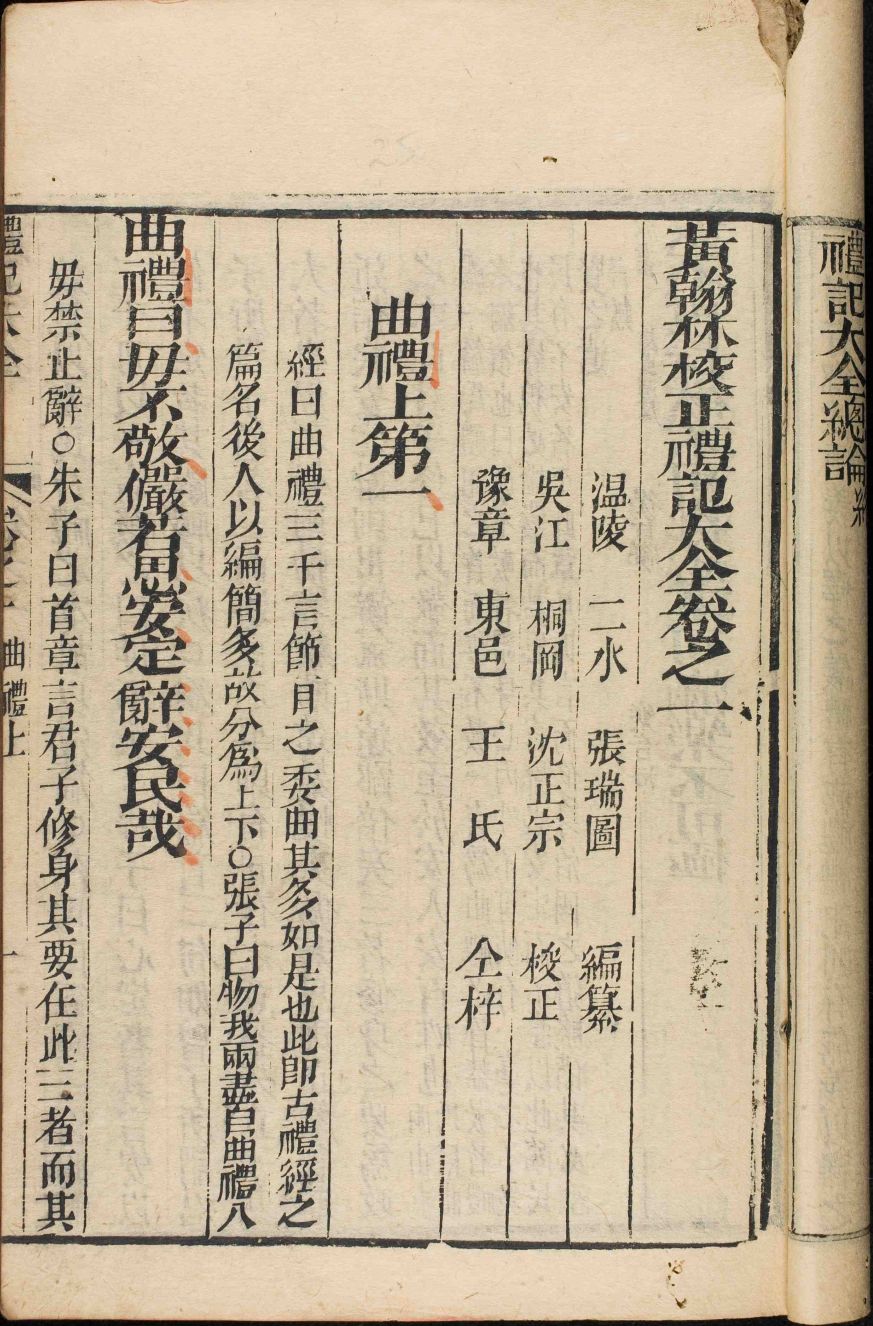 禮記大全總論終
黃翰林校正禮記大全卷之一
温陵 二水 張瑞圖 編纂
吳江 桐岡 沈正宗 校正
豫章 東邑 王氏 仝梓
曲禮上第一
經曰曲禮三千言節目之委曲其多如是也此卽古禮經之
篇名後人以編簡多故分爲上下○張子曰物我兩盡自曲禮入
曲禮曰毋不敬儼若思安定辭安民哉
毋禁止辭○朱子曰首章言君子修身其要在此三者而其
禮記大全 卷之一 曲禮上 一